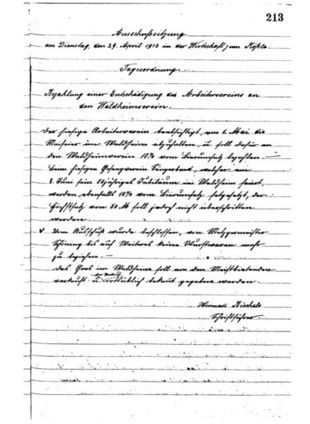 213
Ausschußsitzung
am Dienstag, den 29. April 1913 in der Wirtschaft zum Rößle
Tagesordnung.
Bezahlung einer Entschädigung des Arbeitervereins an
den Waldheimverein.
Der hiesige Arbeiterverein beabsichtigt, am 1. Mai die
Maifeier im Waldheim abzuhalten u. soll dafür an
den Waldheimverein 10% vom Bierumsatz bezahlen.
Beim hiesigen Gesangverein Sängerbund, welcher am
8. Juni sein jähriges Jubiläum im Waldheim feiert,
werden ebenfalls 10% vom Bierumsatz festgesetzt, der
Höchstsatz von 50 M soll jedoch nicht überschritten
werden.
Vom Ausschuß wurde beschlossen, von Metzgermeister
bis auf Weiteres keine Wurstwaren mehr
zu beziehen.
Das Gras im Waldheim soll an den Meistbietenden
verkauft u. bekannt gegeben werden.
Herman
Schriftführer.